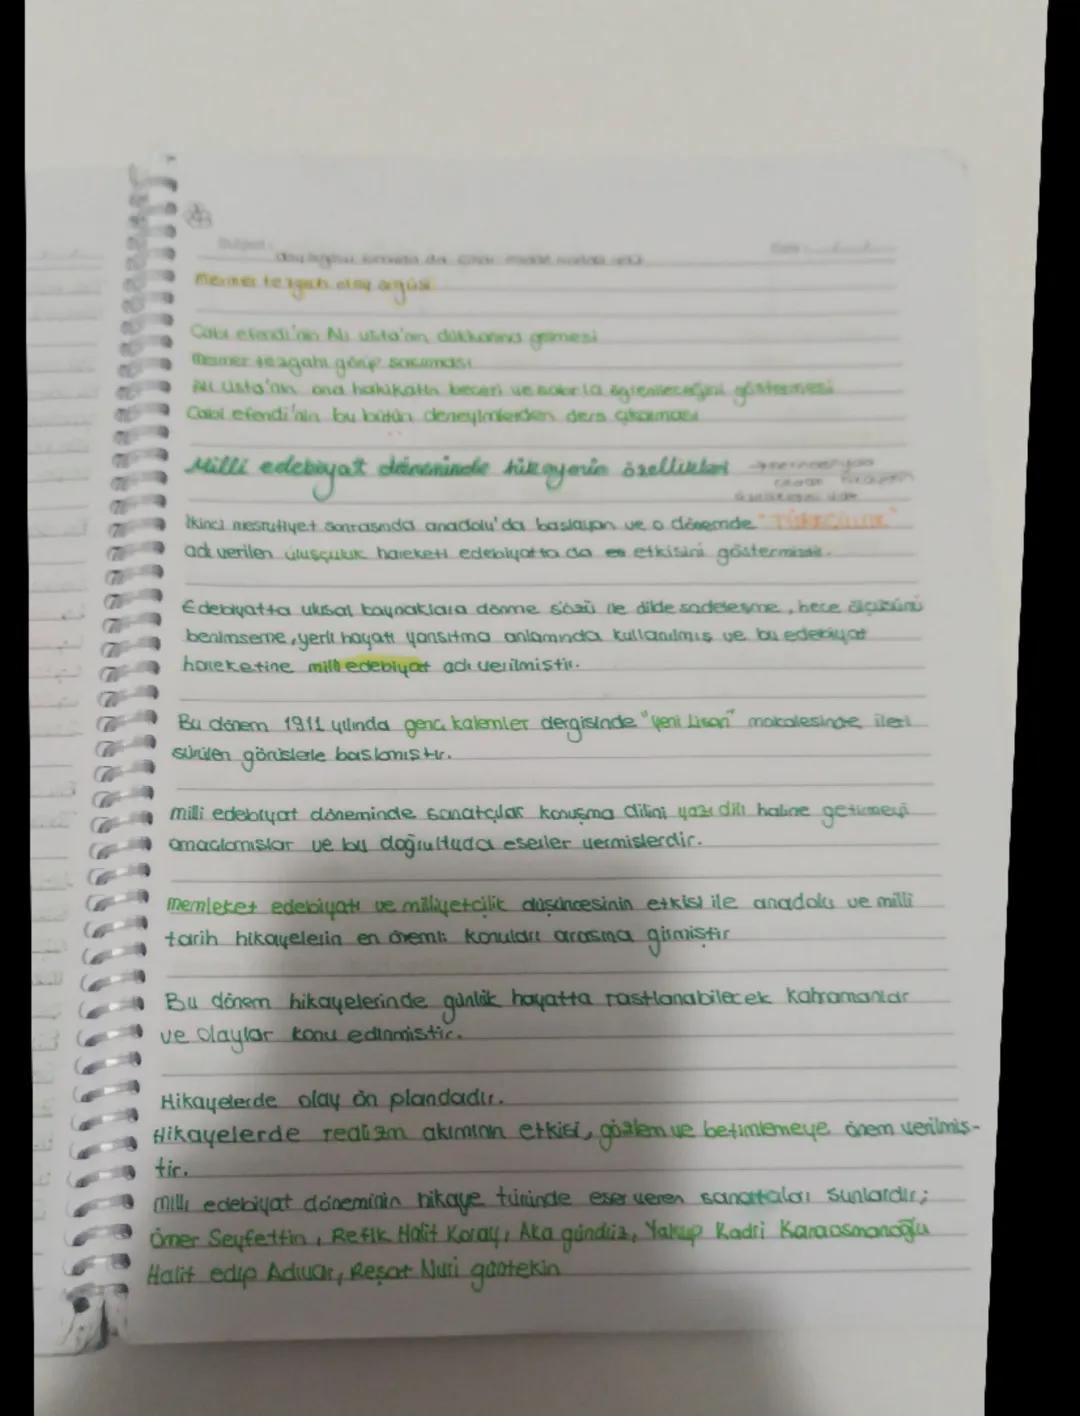 mermer tezgah olay örgüsü
Cabi efendi'nin Ali usta'nın dükkanına gelmesi
mermer tezgahı görüp
Ali Usta'nın ona hakikatin beceri ve sabırla öğrenileceğini göstermesi
Cabi efendi'nin bu bütün deneyimlerden ders çıkarması
Milli edebiyat döneminde hikayenin özellikleri
İkinci mesrutiyet sonrasında anadolu'da baslayan ve o dönemde "TÜRKÇÜLÜK"
adı verilen ulusçuluk hareketi edebiyatta da etkisini göstermistir.
Edebiyatta ulusal kaynaklara dönme sözü ile dilde sadelesme, hece ölçüsünü
benimseme, yerli hayatı yansıtma anlamında kullanılmış ve bu edebiyat
hareketine milli edebiyat adı verilmistir.
Bu dönem 1911 yılında genc kalemler dergisinde "Yeni Lisan" makalesinde ileri
sürülen görüslerle baslamıstır.
milli edebiyat döneminde sanatçılar konuşma dilini yazı dili haline getirmeyi
amaclamıslar ve bu doğrultuda eserler vermislerdir.
memleket edebiyatı ve milliyetcilik düsüncesinin etkisi ile anadolu ve milli
tarih hikayelerin en önemli konuları arasına girmiştir
Bu dönem hikayelerinde günlük hayatta rastlanabilecek kahramanlar
ve olaylar konu edinmistir.
Hikayelerde olay ön plandadır.
Hikayelerde realizm akımının etkisi, gözlem ve betimlemeye önem verilmiş-
tir.
milli edebiyat döneminin hikaye türünde eser veren sanattaları sunlardır;
Ömer Seyfettin, Refik Halit Karay, Aka gündüz, Yakup Kadri Karaosmanoğlu
Halit edip Adıvar, Reşat Nuri güntekin